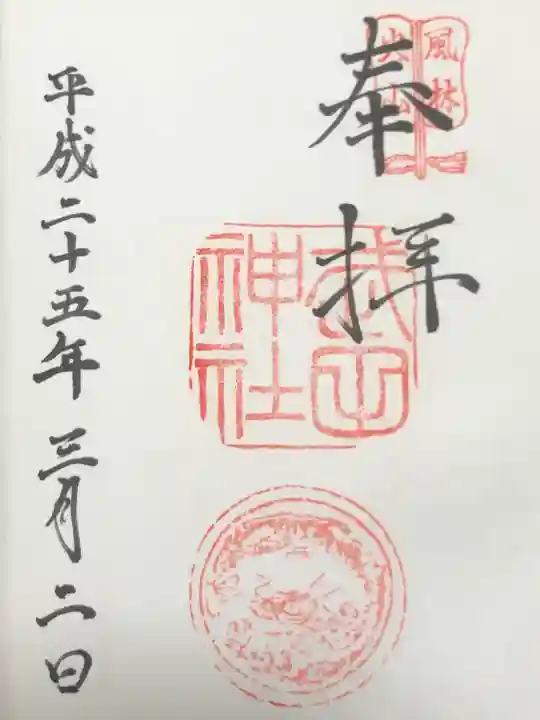 風林
火山
奉拝
武田
神社
平成二十五年三月二日